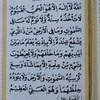 اللَّهُ لَا إِلَٰهَ إِلَّا هُوَ الْحَيُّ الْقَيُّومُ
لَا تَأْخُذُهُ سِنَةٌ وَلَا نَوْمٌ لَهُ مَا فِي
السَّمَٰوَاتِ وَمَا فِي الْأَرْضِ مَنْ ذَا الَّذِي
يَشْفَعُ عِنْدَهُ إِلَّا بِإِذْنِهِ يَعْلَمُ مَا بَيْنَ
أَيْدِيهِمْ وَمَا خَلْفَهُمْ وَلَا يُحِيطُونَ
بِشَيْءٍ مِنْ عِلْمِهِ إِلَّا بِمَا شَاءَ وَسِعَ
كُرْسِيُّهُ السَّمَٰوَاتِ وَالْأَرْضَ وَلَا يَئُودُهُ
حِفْظُهُمَا وَهُوَ الْعَلِيُّ الْعَظِيمُ